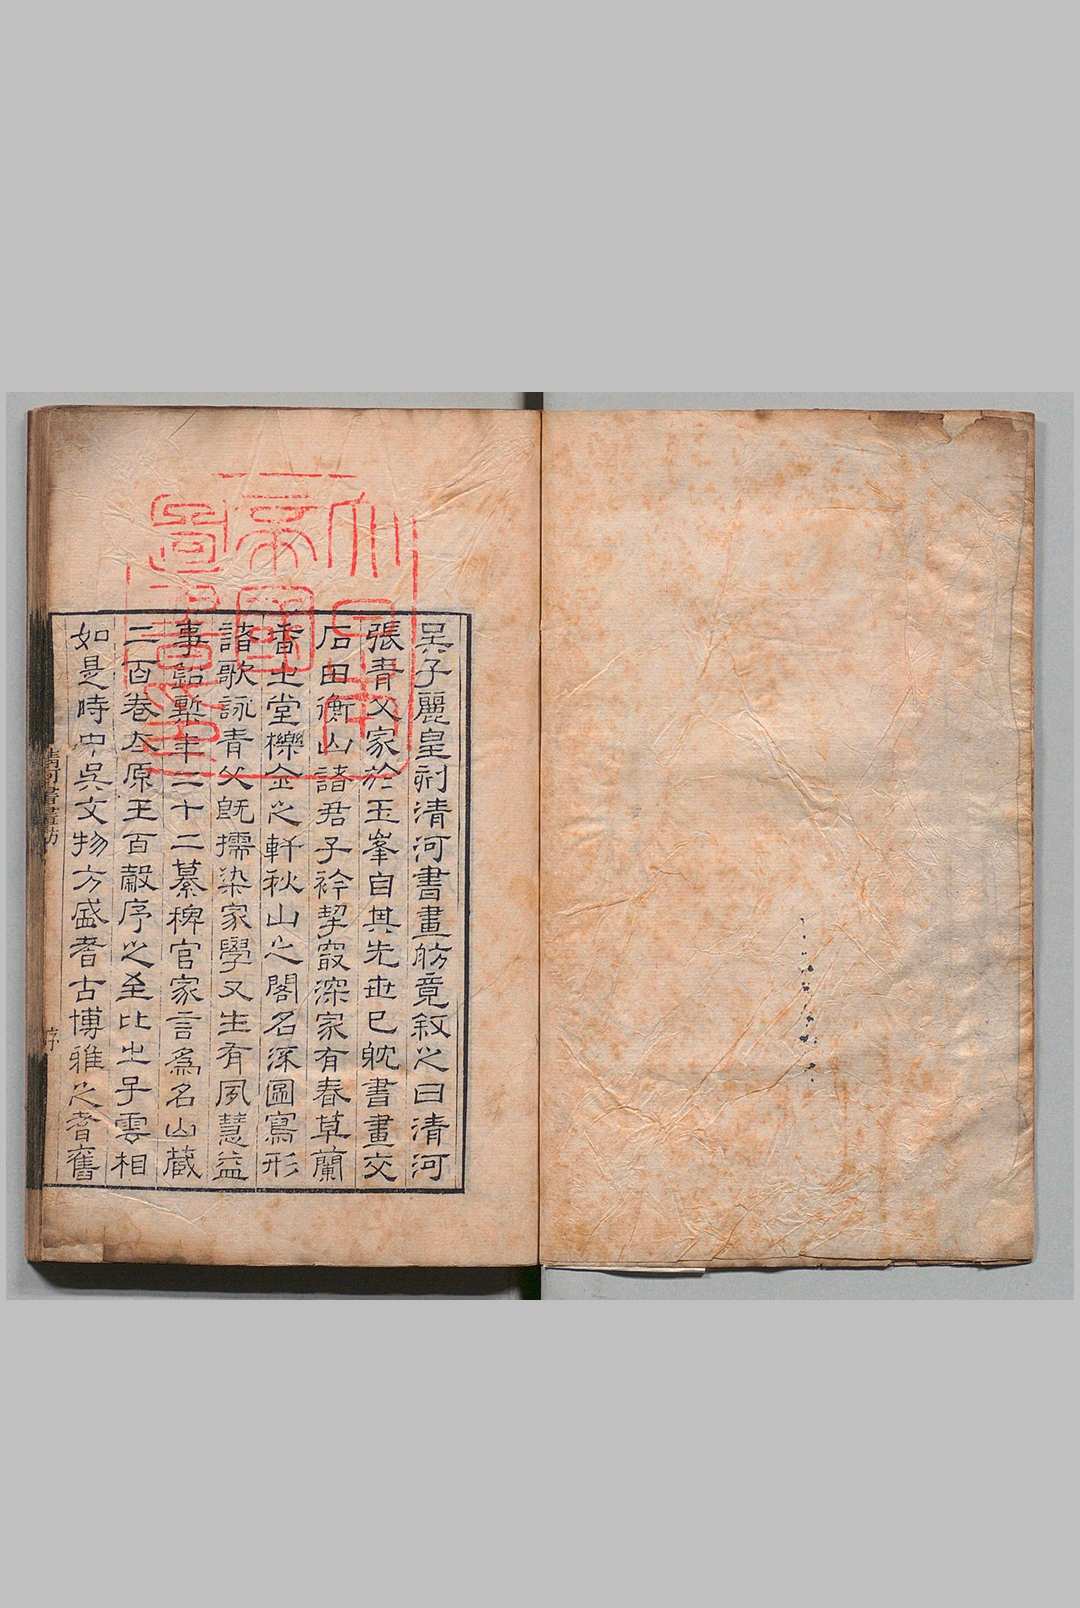 大日本
帝國
圖書印
吳子麗皇刻清河書畫舫竟叙之曰清河
張青父家於玉峯自其先世已躭書畫交
石田衡山諸君子衿挈㝡深家有春草蘭
香之堂櫟全之軒秋山之閣名流圖寫形
諸歌詠青父旣擩染家學又生有夙慧益
事鉛槧年二十二纂稗官家言為名山藏
二百卷太原王百穀序之至比之子雲相
如是時中吳文物方盛耆古博雅之耆舊
清河書畫舫
序